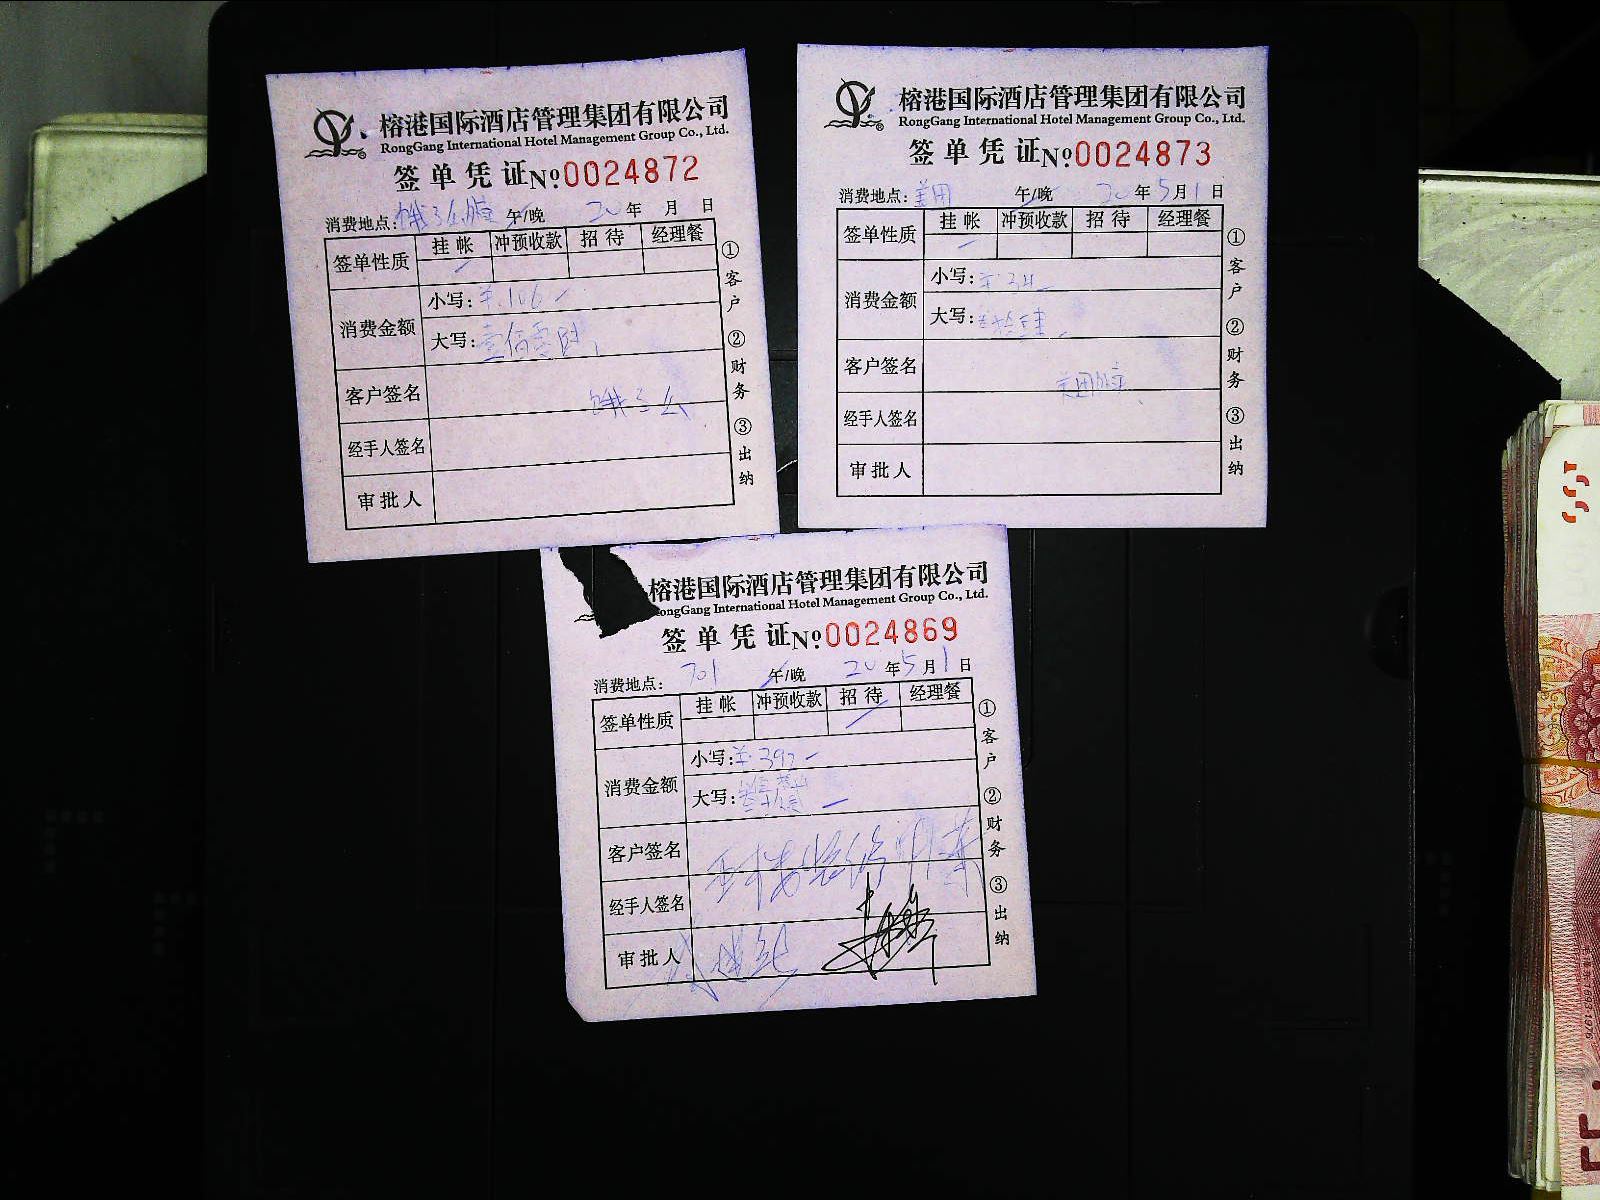 榕港国际酒店管理集团有限公司
RongGang International Hotel Management Group Co., Ltd.
签单凭证№0024872
消费地点: 饿了么 午/晚 20年 月 日
签单性质 挂帐 冲预收款 招待 经理餐
消费金额 小写: ¥.106
大写: 壹佰零陆
客户签名 饿了么
经手人签名
审批人
①客户 ②财务 ③出纳
榕港国际酒店管理集团有限公司
RongGang International Hotel Management Group Co., Ltd.
签单凭证№0024873
消费地点: 美团 午/晚 20年5月1日
签单性质 挂帐 冲预收款 招待 经理餐
消费金额 小写: ¥.34
大写: 叁拾肆
客户签名 美团外卖
经手人签名
审批人
①客户 ②财务 ③出纳
榕港国际酒店管理集团有限公司
ongGang International Hotel Management Group Co., Ltd.
签单凭证№0024869
消费地点: 701 午/晚 20年5月1日
签单性质 挂帐 冲预收款 招待 经理餐
消费金额 小写: ¥.392
大写:
客户签名
经手人签名
审批人
①客户 ②财务 ③出纳